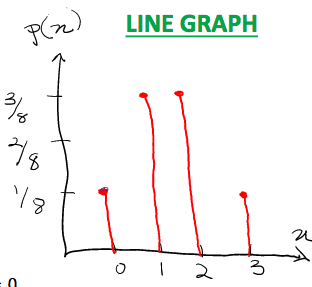 p(x) LINE GRAPH
3/8
2/8
1/8
x
0 1 2 3